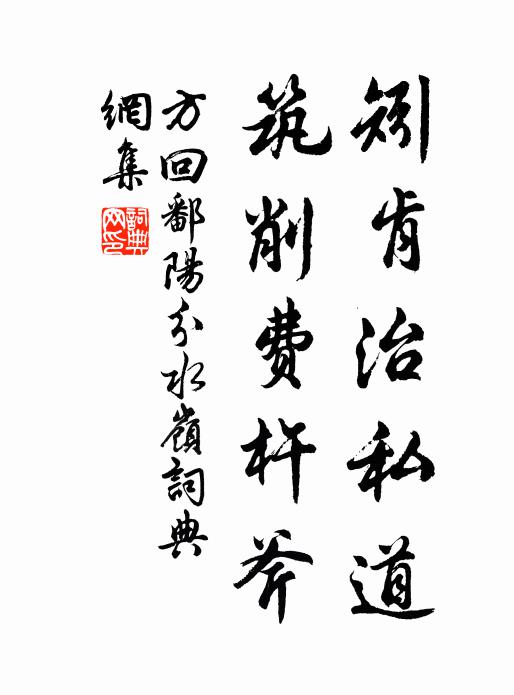 矧肯治私道
筑削费杵斧
方回鄱陽分水嶺詞典
網集
詞典网印